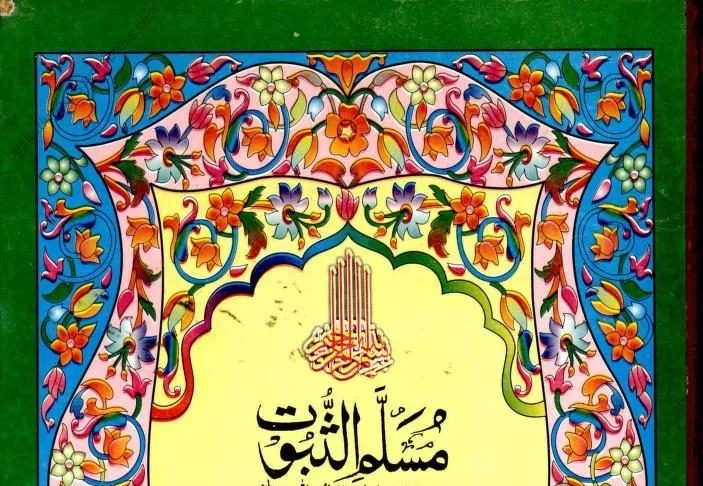 بسم الله الرحمن الرحيم
مُسَلَّمُ الثُّبُوت